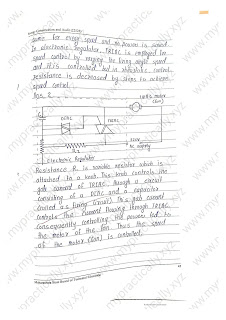 same for every speed and no power is saved.
In electronic regulator, TRIAC is employed for
speed control by varying the firing angle speed
and it is controlled but in rheostatic control
resistance is decreased by steps to achieve
speed control.
Ans. 2
DIAC
TRIAC
C
R
230V
AC supply
Electronic Regulator
Resistance R is variable resistor which is
attached to a knob. This knob controls the
gate current of TRIAC through a circuit
consisting of a DIAC and a capacitor
(called as firing circuit). This gate current
controls the current flowing through TRIAC
consequently controlling the power fed to
the motor of the fan. Thus the speed
of the motor (fan) is controlled.